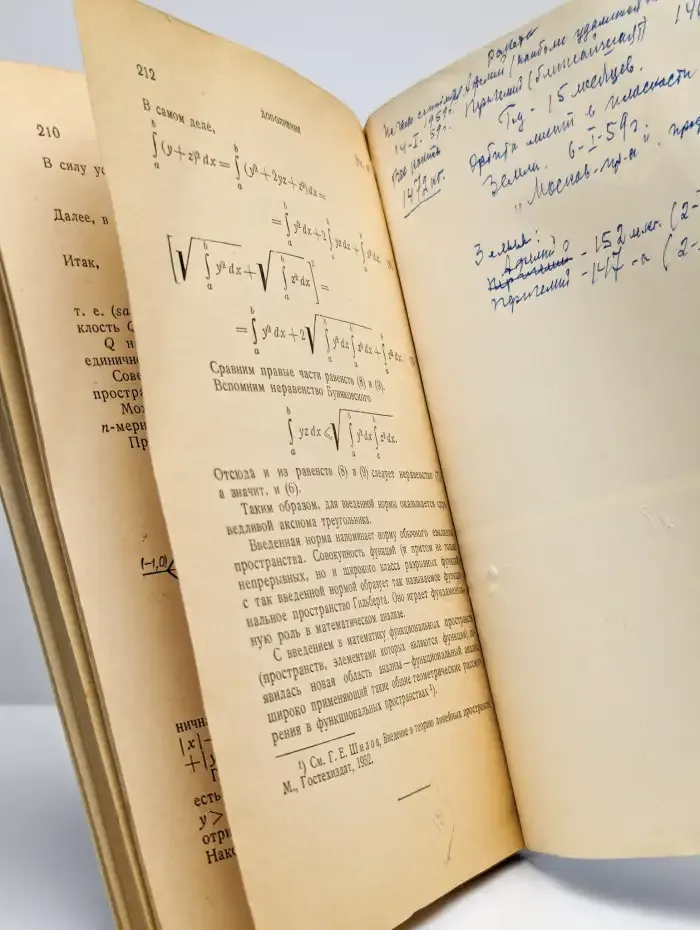 210
В силу
Далее, в
Итак,
т. е.
клость
Q
единичн
Сове
простра
Мо
n-мерн
Пр
(−1,0)
ничн
|x|−
+|y
есть
y >
отри
Нако
212
ДОПОЛНЕНИЯ
В самом деле,
∫ₐᵇ (y+z)² dx = ∫ₐᵇ (y²+2yz+z²) dx =
= ∫ₐᵇ y² dx + 2 ∫ₐᵇ yz dx + ∫ₐᵇ z² dx,
[√(∫ₐᵇ y² dx) + √(∫ₐᵇ z² dx)]² =
= ∫ₐᵇ y² dx + 2 √(∫ₐᵇ y² dx ∫ₐᵇ z² dx) + ∫ₐᵇ z² dx.
Сравним правые части равенств (8) и (9).
Вспомним неравенство Буняковского
∫ₐᵇ yz dx ⩽ √(∫ₐᵇ y² dx ∫ₐᵇ z² dx).
Отсюда и из равенств (8) и (9) следует неравенство (7),
а значит, и (6).
Таким образом, для введенной нормы оказывается спра-
ведливой аксиома треугольника.
Введенная норма напоминает норму обычного евклидова
пространства. Совокупность функций (и притом не только
непрерывных, но и широкого класса разрывных функций)
с так введенной нормой образует так называемое функцио-
нальное пространство Гильберта. Оно играет фундаменталь-
ную роль в математическом анализе.
С введением в математику функциональных пространств
(пространств, элементами которых являются функции) по-
явилась новая область анализа — функциональный анализ,
широко применяющий такие общие геометрические рассмот-
рения в функциональных пространствах ¹).
¹) См. Г. Е. Шилов, Введение в теорию линейных пространств,
М., Гостехиздат, 1952.
Ракета
Афелий (наиболее удаленная
1959г. Перигелий (ближайшая)
4-I. 59г. Tу - 15 месяцев.
Вес ракеты Орбита лежит в плоскости
1472 кг. Земли. 6-I-59г.
„Москов. пр-а".
Земля:
Афелий - 152 млн. (2-
перигелий - 147 -"- (2-